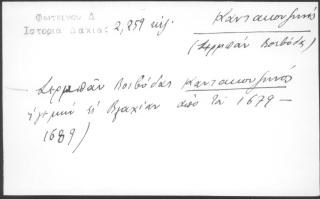 Φωτεινου Δ
Ιστορια Δακιας 2,259 κἑξ.
Καντακουζηνός
(Σερμπάν Βοιβόδας)
Σερμπᾶν Βοιβόδας Καντακουζηνός
ἡγεμὼν τ. Βλαχίαν ἀπὸ τὰ 1679 —
1689)